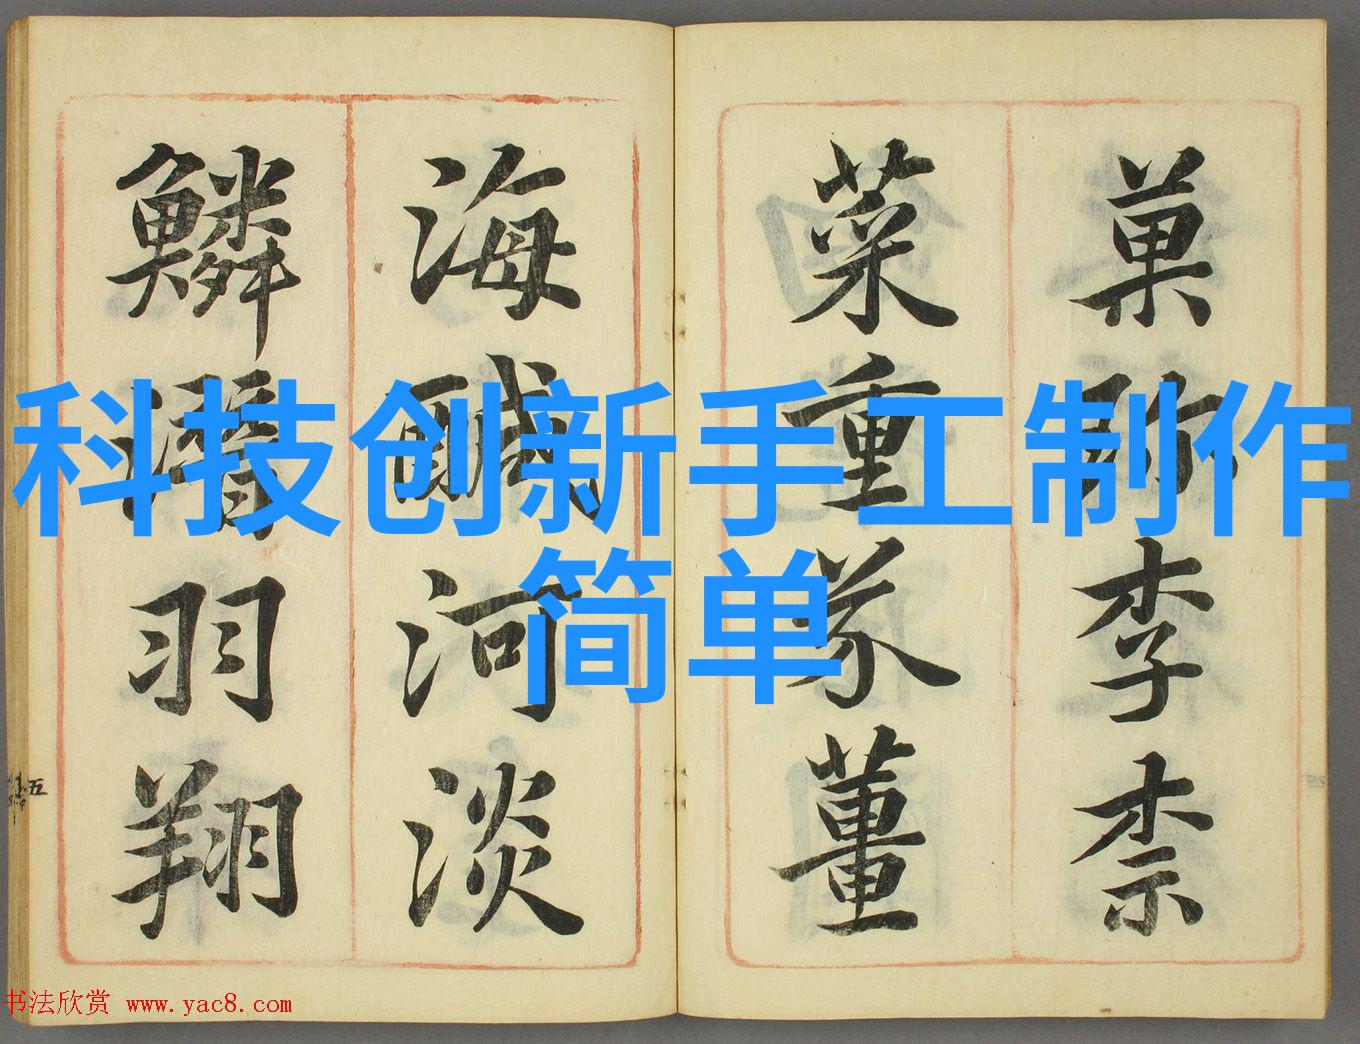 科技创新手工制作
简单
菓珎李柰
菜重芥薑
海醎河淡
鱗潛羽翔
五
书法欣赏 www.yac8.com